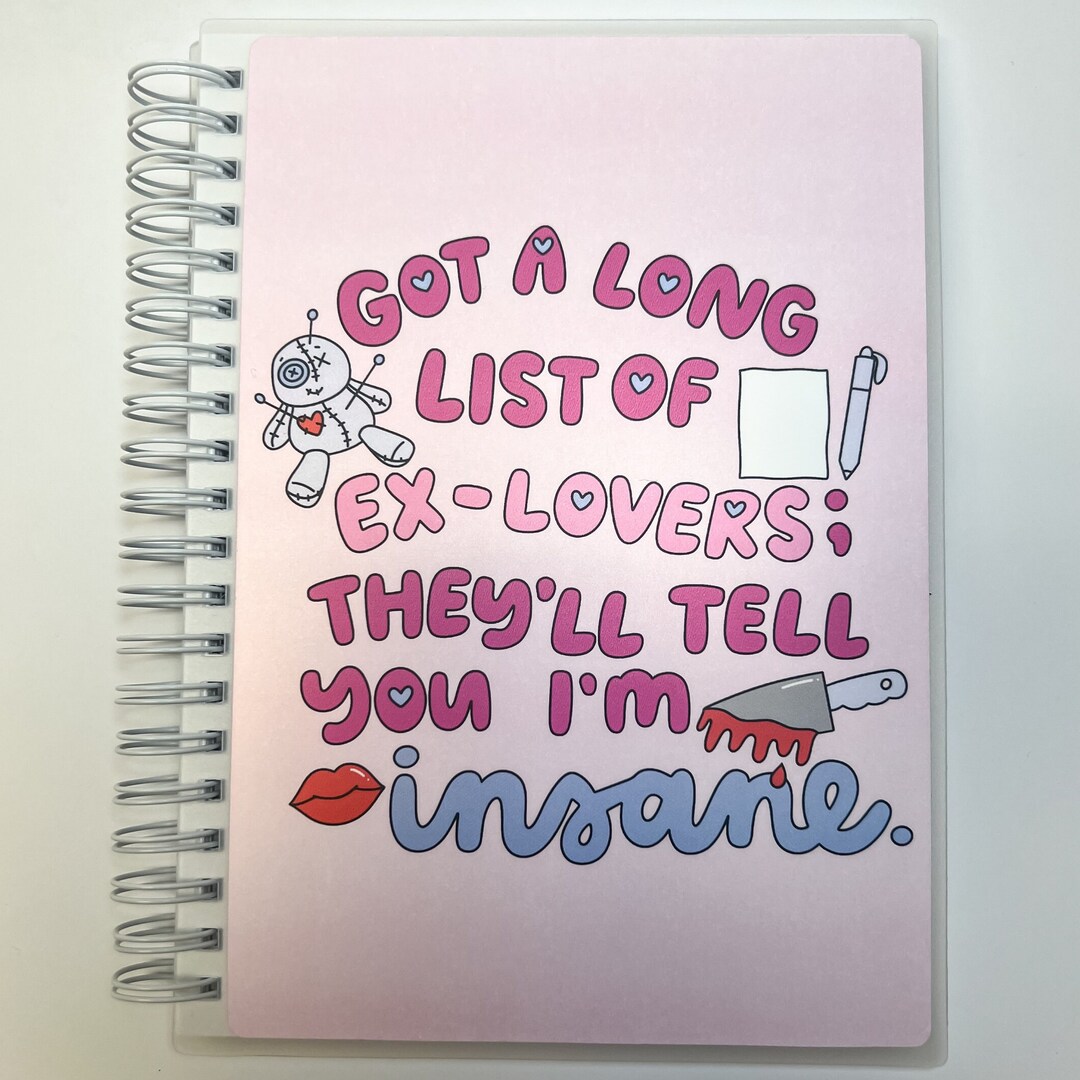 GOT A LONG
LIST OF
EX-LOVERS;
THEY'LL TELL
YOU I'M
insane.